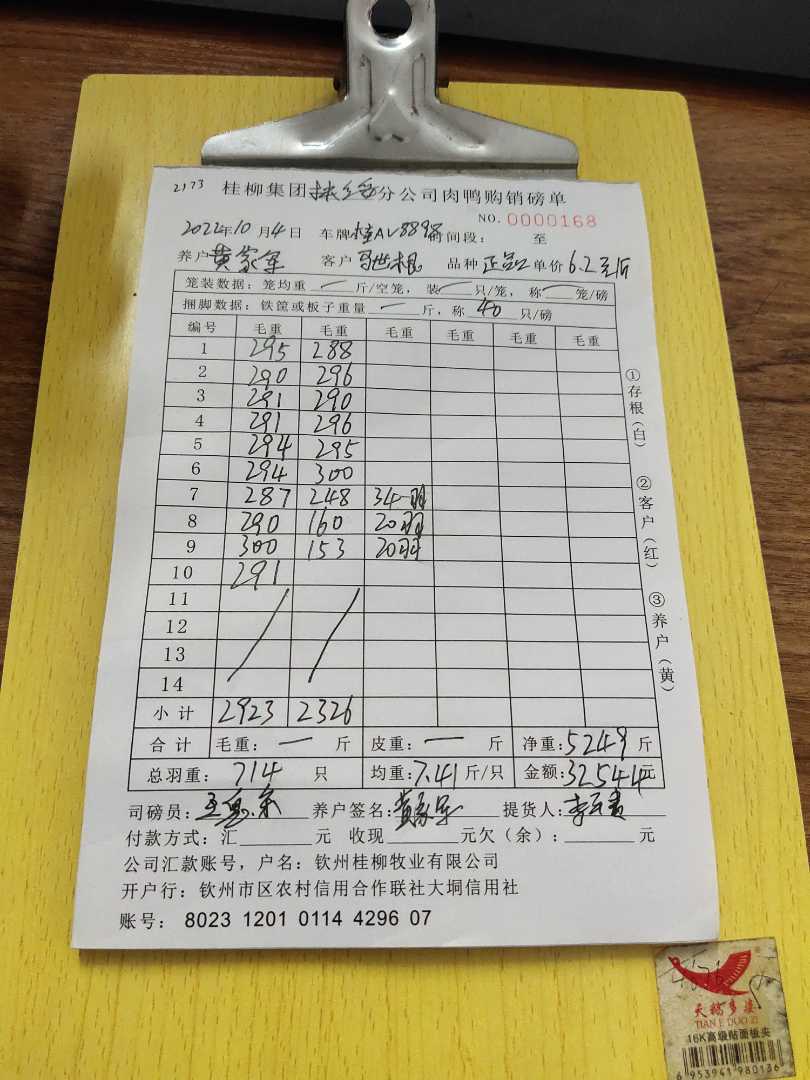 2173 桂柳集团扶绥分公司肉鸭购销磅单
NO. 0000168
2022年10月4日 车牌桂AV8898 时间段: 至
养户黄家军 客户 世根 品种 正品 单价6.2元/斤
笼装数据: 笼均重 一 斤/空笼, 装 一 只/笼, 称 一 笼/磅
捆脚数据: 铁筐或板子重量 一 斤, 称 40 只/磅
编号 毛重 毛重 毛重 毛重 毛重 毛重
1 295 288
2 290 296
3 291 290
4 291 296
5 294 295
6 294 300
7 287 248 34羽
8 290 160 20羽
9 300 153 20羽
10 291
11
12
13
14
小计 2923 2326
合计 毛重: 一 斤 皮重: 一 斤 净重: 5249 斤
总羽重: 714 只 均重: 7.41 斤/只 金额: 32544元
司磅员: 王 养户签名: 黄家军 提货人: 李
付款方式: 汇 元 收现 元欠(余): 元
公司汇款账号, 户名: 钦州桂柳牧业有限公司
开户行: 钦州市区农村信用合作联社大垌信用社
账号: 8023 1201 0114 4296 07
①存根(白)
②客户(红)
③养户(黄)
天鹅多姿
TIAN E DUO ZI
16K高级贴面板夹
6 953941 980136